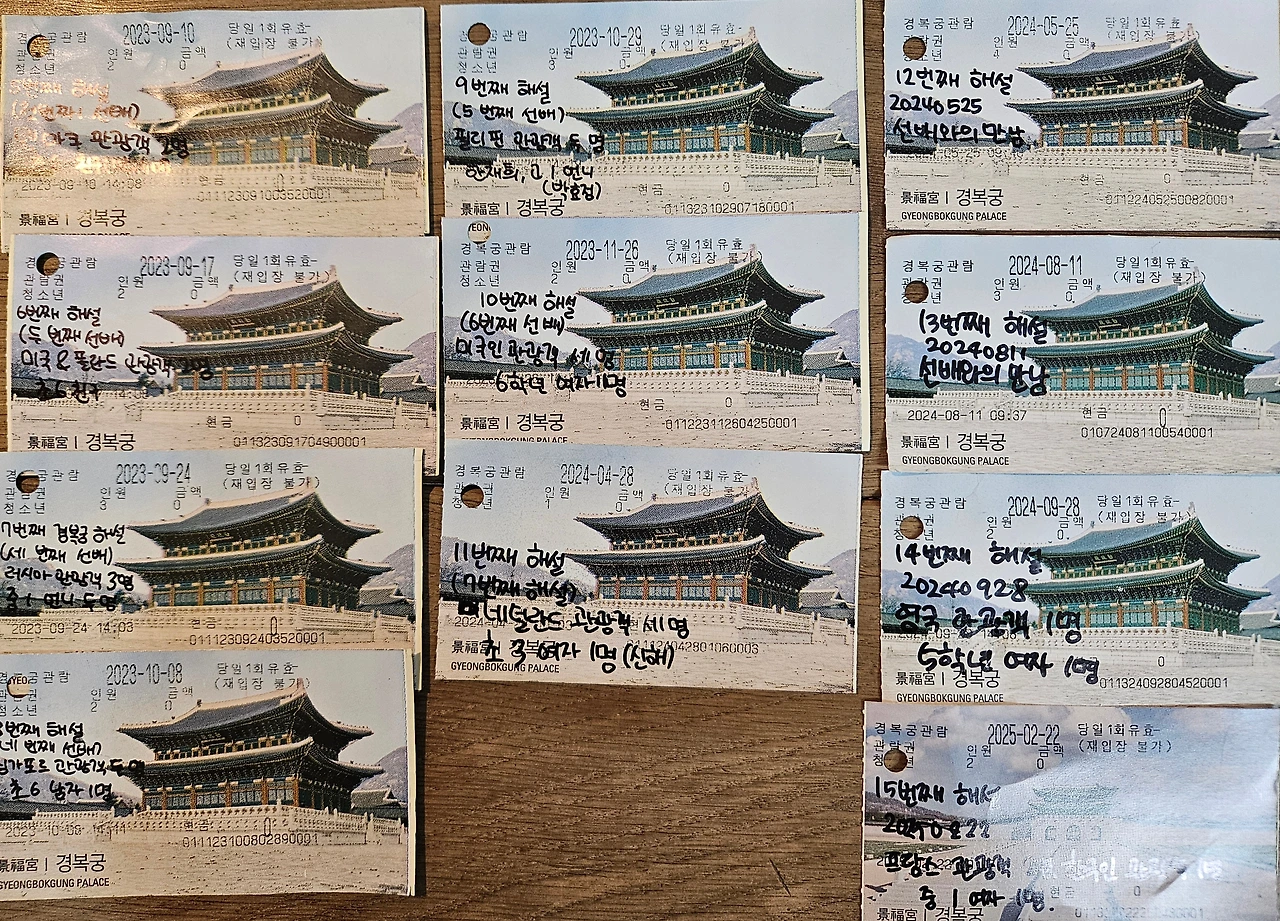 경복궁관람 2023-09-10 당일1회유효
관람권 인원 금액 (재입장 불가)
청소년 2 0
해설
관광객 2명
2023-09-10 14:08 현금 0
011123091003520001
景福宮 | 경복궁
경복궁관람 2023-09-17 당일1회유효
관람권 인원 금액 (재입장 불가)
청소년 2 0
6번째 해설
(두 번째 선배)
미국 & 폴란드 관광객
초6 친구
현금 0
011323091704900001
景福宮 | 경복궁
경복궁관람 2023-09-24 당일1회유효
관람권 인원 금액 (재입장 불가)
청소년 3 0
7번째 경복궁 해설
(세 번째 선배)
러시아 관광객 3명
중1 언니 두 명
2023-09-24 14:03 현금 0
011123092403520001
경복궁관람 2023-10-08 당일1회유효
인원 금액 (재입장 불가)
청소년 2 0
번째 해설
네 번째 선배)
가포르 관광객 두 명
초6 남자 1명
2023-10-08 현금 0
011123100802890001
景福宮 | 경복궁
GYEONGBOKGUNG PALACE
경복궁관람 2023-10-29 당일1회유효
관람권 인원 금액 (재입장 불가)
청소년 3 0
9번째 해설
(5번째 선배)
필리핀 관광객 두 명
한재희, 고1 언니
(박효정)
현금 0
011323102907180001
景福宮 | 경복궁
YEON
경복궁관람 2023-11-26 당일1회유효
관람권 인원 금액 (재입장 불가)
청소년 2 0
10번째 해설
(6번째 선배)
미국인 관광객 세 명
6학년 여자 1명
현금 0
011223112604250001
景福宮 | 경복궁
경복궁관람 2024-04-28 당일1회유효
관람권 인원 금액 (재입장 불가)
청소년 1 0
11번째 해설
(7번째 해설)
네덜란드 관광객 세 명
초 3 여자 1명 (신해)
景福宮
GYEONGBOKGUNG PALACE
경복궁관람 2024-05-25 당일1회유효
관람권 인원 금액 (재입장 불가)
청소년 4 0
12번째 해설
20240525
선배와의 만남
현금 0
011224052500820001
景福宮 | 경복궁
GYEONGBOKGUNG PALACE
경복궁관람 2024-08-11 당일1회유효
관람권 인원 금액 (재입장 불가)
청소년 3 0
13번째 해설
20240811
선배와의 만남
2024-08-11 09:37 현금 0
010724081100540001
景福宮 | 경복궁
GYEONGBOKGUNG PALACE
경복궁관람 2024-09-28 당일1회유효
관람권 인원 금액 (재입장 불가)
청소년 2 0
14번째 해설
20240928
관광객 1명
5학년 여자 1명
0
011324092804520001
景福宮 | 경복궁
GYEONGBOKGUNG PALACE
경복궁관람 2025-02-22 당일1회유효
관람권 인원 금액 (재입장 불가)
청소년 2 0
15번째 해설
20250222
프랑스 관광객 한국인
중 1 여자 1명
현금 0
景福宮 | 경복궁